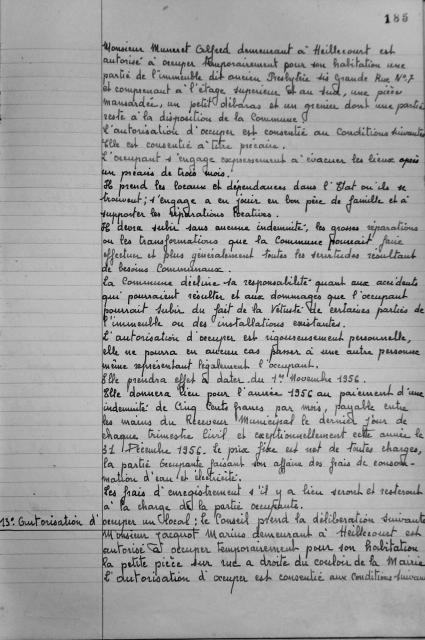 185
Monsieur Muneret Alfred demeurant à Heillecourt est
autorisé à occuper temporairement pour son habitation une
partie de l'immeuble dit ancien Presbytère sis Grande Rue N°7
et comprenant à l'étage supérieur et au sud, une pièce
mansardée, un petit débaras et un grenier dont une partie
reste à la disposition de la Commune
L'autorisation d'occuper est consentie au conditions suivantes
Elle est consentie à titre précaire.
L'occupant s'engage expressement à évacuer les lieux après
un préavis de trois mois.
Il prend les locaux et dépendances dans l'État ou ils se
trouvent; s'engage a en jouir en bon père de famille et à
supporter les réparations locatives.
Il devra subir sans aucune indemnité, les grosses réparations
ou les transformations que la Commune pourrait faire
effectuer et plus généralement toutes les servitudes résultant
de besoins Communaux.
La Commune décline sa responsabilité quant aux accidents
qui pourraient résulter et aux dommages que l'occupant
pourrait subir du fait de la Vétusté de certaines parties de
l'immeuble ou des installations existantes.
L'autorisation d'occuper est rigoureusement personnelle,
elle ne pourra en aucun cas passer à une autre personne
même représentant légalement l'occupant.
Elle prendra effet à dater du 1er Novembre 1956.
Elle donnera lieu pour l'année 1956 au paiement d'une
indemnité de Cinq Cents francs par mois, payable entre
les mains du Receveur Municipal le dernier jour de
chaque trimestre Civil et exceptionnellement cette année le
31 Décembre 1956. Le prix fixé est net de toutes charges,
la partie Occupante faisant son affaire des frais de consom-
mation d'eau et électricité.
Les frais d'enregistrement s'il y a lieu seront et resteront
à la charge de la partie occupante.
13° Autorisation d'occuper un local; le Conseil prend la délibération suivante
Monsieur Jacquot Marius demeurant à Heillecourt est
autorisé à occuper temporairement pour son habitation
la petite pièce sur rue a droite du couloir de la Mairie
L'autorisation d'occuper est consentie aux conditions suivantes